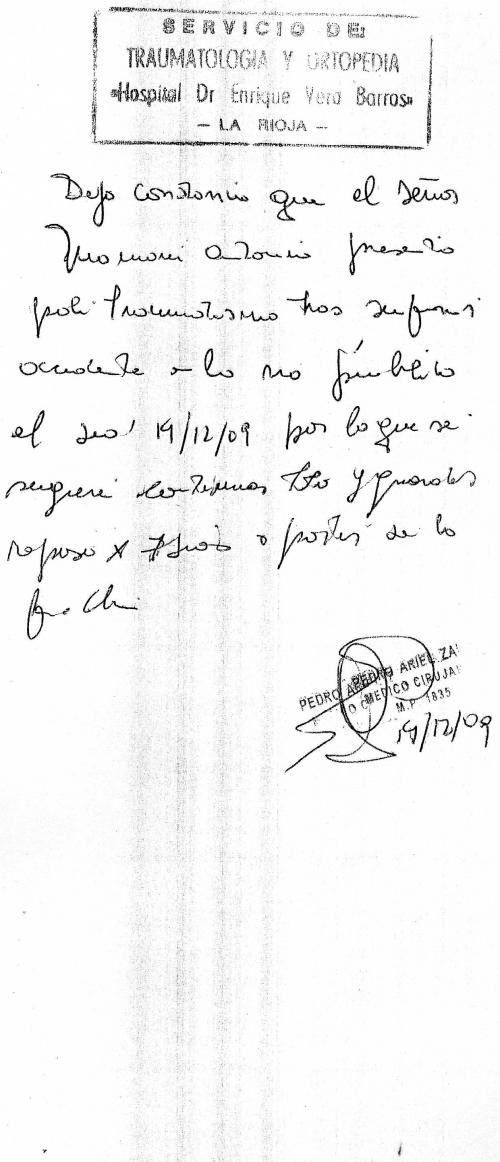 SERVICIO DE:
TRAUMATOLOGIA Y ORTOPEDIA
«Hospital Dr Enrique Vera Barros»
- LA RIOJA -
Dejo constancia que el señor
Antonio presento
politraumatismo tras sufrir
accidente en la via pública
el dia 19/12/09 por lo que se
sugiere continuar tto y guardar
reposo x 7 dias a partir de la
fecha
PEDRO ARIEL ZA
MEDICO CIRUJA
M.P. 1835
19/12/09